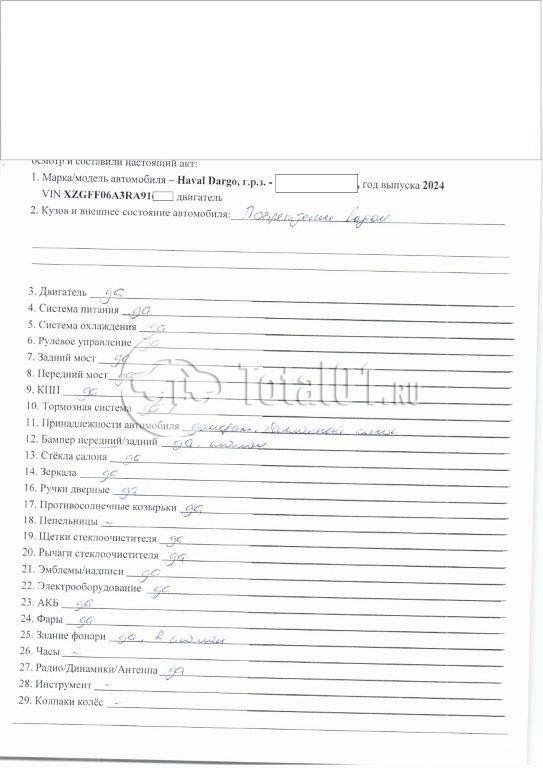 осмотр и составили настоящий акт:
1. Марка/модель автомобиля – Haval Dargo, г.р.з. - , год выпуска 2024
VIN XZGFF06A3RA91 двигатель
2. Кузов и внешнее состояние автомобиля:
3. Двигатель да
4. Система питания да
5. Система охлаждения да
6. Рулевое управление да
7. Задний мост да
8. Передний мост да
Total01.RU
9. КПП да
10. Тормозная система да
11. Принадлежности автомобиля
12. Бампер передний/задний да,
13. Стёкла салона да
14. Зеркала да
16. Ручки дверные да
17. Противосолнечные козырьки да
18. Пепельницы -
19. Щетки стеклоочистителя да
20. Рычаги стеклоочистителя да
21. Эмблемы/надписи да
22. Электрооборудование да
23. АКБ да
24. Фары да
25. Задние фонари да,
26. Часы -
27. Радио/Динамики/Антенна да
28. Инструмент -
29. Колпаки колёс -